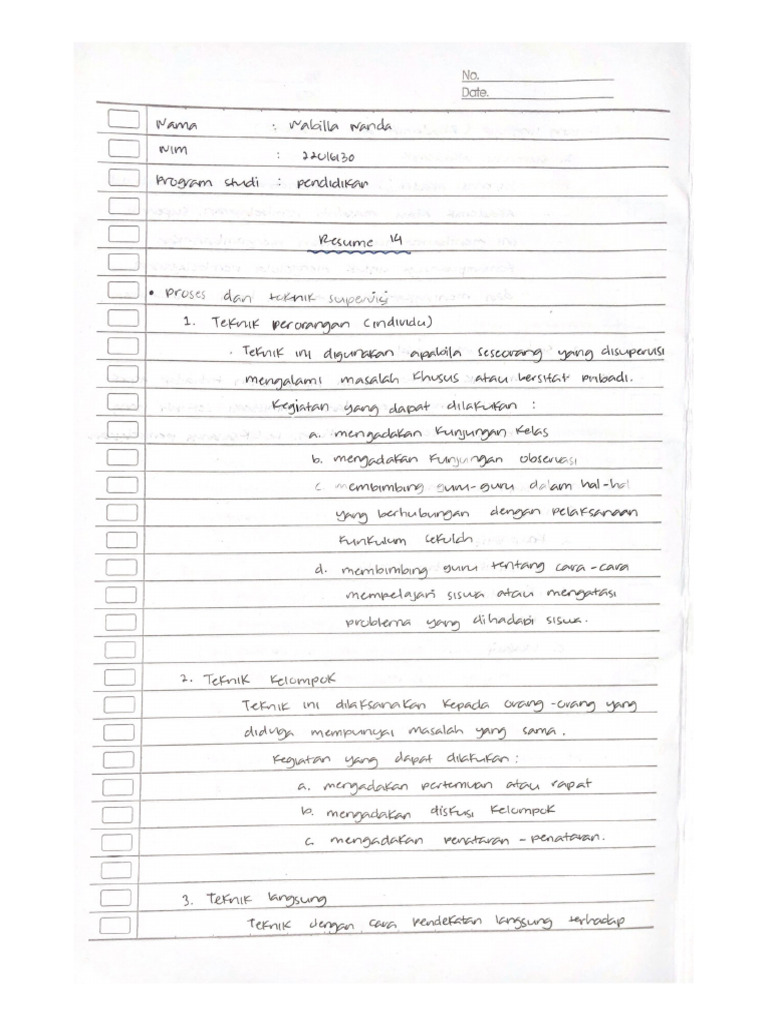 No.
Date.
Nama : Nabilla Nanda
NIM : 22016130
Program studi : pendidikan
Resume 14
• Proses dan teknik supervisi
1. Teknik perorangan (individu)
. Teknik ini digunakan apabila seseorang yang disupervisi
mengalami masalah khusus atau bersifat pribadi.
Kegiatan yang dapat dilakukan :
a. mengadakan kunjungan kelas
b. mengadakan kunjungan observasi
c. membimbing guru-guru dalam hal-hal
yang berhubungan dengan pelaksanaan
kurikulum sekolah
d. membimbing guru tentang cara-cara
mempelajari siswa atau mengatasi
problema yang dihadapi siswa.
2. Teknik kelompok
Teknik ini dilaksanakan kepada orang-orang yang
diduga mempunyai masalah yang sama.
Kegiatan yang dapat dilakukan :
a. mengadakan pertemuan atau rapat
b. mengadakan diskusi kelompok
c. mengadakan penataran-penataran.
3. Teknik langsung
Teknik dengan cara pendekatan langsung terhadap